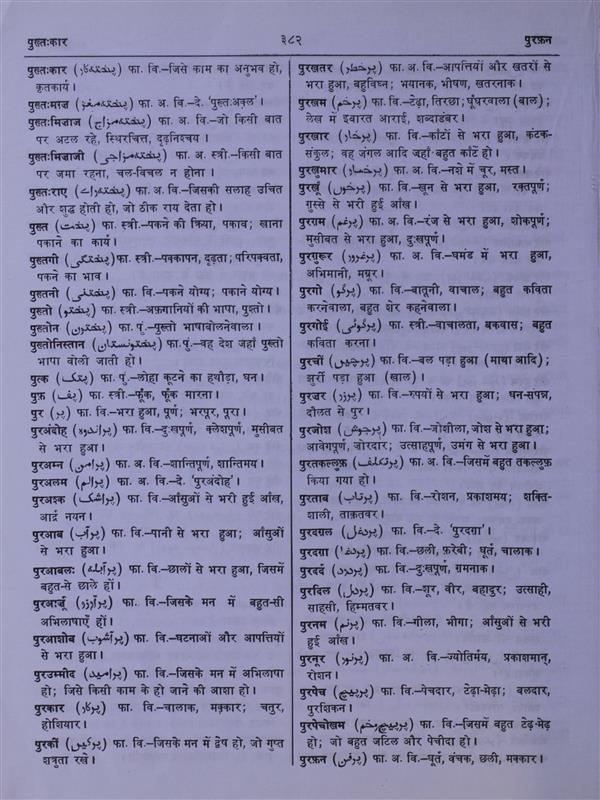 पुख़्तःकार ३८२ पुरफ़न
पुख़्तःकार (پختہ کار) फा. वि.–जिसे काम का अनुभव हो,
कृतकार्य।
पुख़्तःमग़्ज़ (پختہ مغز) फा. अ. वि.–दे. 'पुख़्तःअक़्ल'।
पुख़्तःमिज़ाज (پختہ مزاج) फा. अ. वि.–जो किसी बात
पर अटल रहे, स्थिरचित्त, दृढ़निश्चय।
पुख़्तःमिज़ाजी (پختہ مزاجی) फा. अ. स्त्री.–किसी बात
पर जमा रहना, चल-विचल न होना।
पुख़्तःराए (پختہ راے) फा. अ. वि.–जिसकी सलाह उचित
और शुद्ध होती हो, जो ठीक राय देता हो।
पुख़्त (پخت) फा. स्त्री.–पकने की क्रिया, पकाव; खाना
पकाने का कार्य।
पुख़्तगी (پختگی) फा. स्त्री.–पक्कापन, दृढ़ता; परिपक्वता,
पकने का भाव।
पुख़्तनी (پختنی) फा. वि.–पकने योग्य; पकाने योग्य।
पुख़्तो (پختو) फा. स्त्री.–अफ़ग़ानियों की भाषा, पुश्तो।
पुख़्तोन (پختون) फा. पुं.–पुख़्तो भाषाबोलनेवाला।
पुख़्तोनिस्तान (پختونستان) फा. पुं.–वह देश जहाँ पुख़्तो
भाषा बोली जाती हो।
पुत्क (پتک) फा. पुं.–लोहा कूटने का हथौड़ा, घन।
पुफ़ (پف) फा. स्त्री.–फूँक, फूँक मारना।
पुर (پر) फा. वि.–भरा हुआ, पूर्ण; भरपूर, पूरा।
पुरअंदोह (پراندوہ) फा. वि.–दुःखपूर्ण, क्लेशपूर्ण, मुसीबत
से भरा हुआ।
पुरअम्न (پرامن) फा. अ. वि.–शान्तिपूर्ण, शान्तिमय।
पुरअलम (پرالم) फा. अ. वि.–दे. 'पुरअंदोह'।
पुरअश्क (پراشک) फा. वि.–आँसुओं से भरी हुई आंख,
आर्द्र नयन।
पुरआब (پرآب) फा. वि.–पानी से भरा हुआ; आँसुओं
से भरा हुआ।
पुरआबलः (پرآبلہ) फा. वि.–छालों से भरा हुआ, जिसमें
बहुत-से छाले हों।
पुरआर्ज़ू (پرآرزو) फा. वि.–जिसके मन में बहुत-सी
अभिलाषाएँ हों।
पुरआशोब (پرآشوب) फा. वि.–घटनाओं और आपत्तियों
से भरा हुआ।
पुरउम्मीद (پرامید) फा. वि.–जिसके मन में अभिलाषा
हो; जिसे किसी काम के हो जाने की आशा हो।
पुरकार (پرکار) फा. वि.–चालाक, मक्कार; चतुर,
होशियार।
पुरकीं (پرکیں) फा. वि.–जिसके मन में द्वेष हो, जो गुप्त
शत्रुता रखे।
पुरख़तर (پرخطر) फा. अ. वि.–आपत्तियों और ख़तरों से
भरा हुआ, बहुविघ्न; भयानक, भीषण, ख़तरनाक।
पुरख़म (پرخم) फा. वि.–टेढ़ा, तिरछा, घूंघरवाला (बाल);
लेख में इबारत आराई, शब्दाडंबर।
पुरख़ार (پرخار) फा. वि.–काँटों से भरा हुआ, कंटक-
संकुल; वह जंगल आदि जहाँ बहुत काँटे हो।
पुरख़ुमार (پرخمار) फा. अ. वि.–नशे में चूर, मस्त।
पुरख़ूं (پرخوں) फा. वि.–ख़ून से भरा हुआ, रक्तपूर्ण;
गुस्से से भरी हुई आंख।
पुरग़म (پرغم) फा. अ. वि.–रंज से भरा हुआ, शोकपूर्ण;
मुसीबत से भरा हुआ, दुःखपूर्ण।
पुरग़ुरूर (پرغرور) फा. अ. वि.–घमंड में भरा हुआ,
अभिमानी, मग़्रूर।
पुरगो (پرگو) फा. वि.–बातूनी, वाचाल; बहुत कविता
करनेवाला, बहुत शेर कहनेवाला।
पुरगोई (پرگوئی) फा. स्त्री.–वाचालता, बकवास; बहुत
कविता करना।
पुरचीं (پرچیں) फा. वि.–बल पड़ा हुआ (माथा आदि);
झुर्री पड़ा हुआ (खाल)।
पुरज़र (پرزر) फा. वि.–रुपयों से भरा हुआ; धन-संपन्न,
दौलत से पुर।
पुरजोश (پرجوش) फा. वि.–जोशीला, जोश से भरा हुआ;
आवेगपूर्ण, ज़ोरदार; उत्साहपूर्ण, उमंग से भरा हुआ।
पुरतकल्लुफ़ (پرتکلف) फा. अ. वि.–जिसमें बहुत तकल्लुफ़
किया गया हो।
पुरताब (پرتاب) फा. वि.–रोशन, प्रकाशमय; शक्ति-
शाली, ताक़तवर।
पुरदग़ल (پردغل) फा. वि.–दे. 'पुरदग़ा'।
पुरदग़ा (پردغا) फा. वि.–छली, फ़रेबी; धूर्त, चालाक।
पुरदर्द (پردرد) फा. वि.–दुःखपूर्ण, ग़मनाक।
पुरदिल (پردل) फा. वि.–शूर, वीर, बहादुर; उत्साही,
साहसी, हिम्मतवर।
पुरनम (پرنم) फा. वि.–गीला, भीगा; आँसुओं से भरी
हुई आंख।
पुरनूर (پرنور) फा. अ. वि.–ज्योतिर्मय, प्रकाशमान्,
रोशन।
पुरपेच (پرپیچ) फा. वि.–पेचदार, टेढ़ा-मेढ़ा; बलदार,
पुरशिकन।
पुरपेचोख़म (پرپیچ و خم) फा. वि.–जिसमें बहुत टेढ़-मेढ़
हो; जो बहुत जटिल और पेचीदा हो।
पुरफ़न (پرفن) फा. अ. वि.–धूर्त, वंचक, छली, मक्कार।